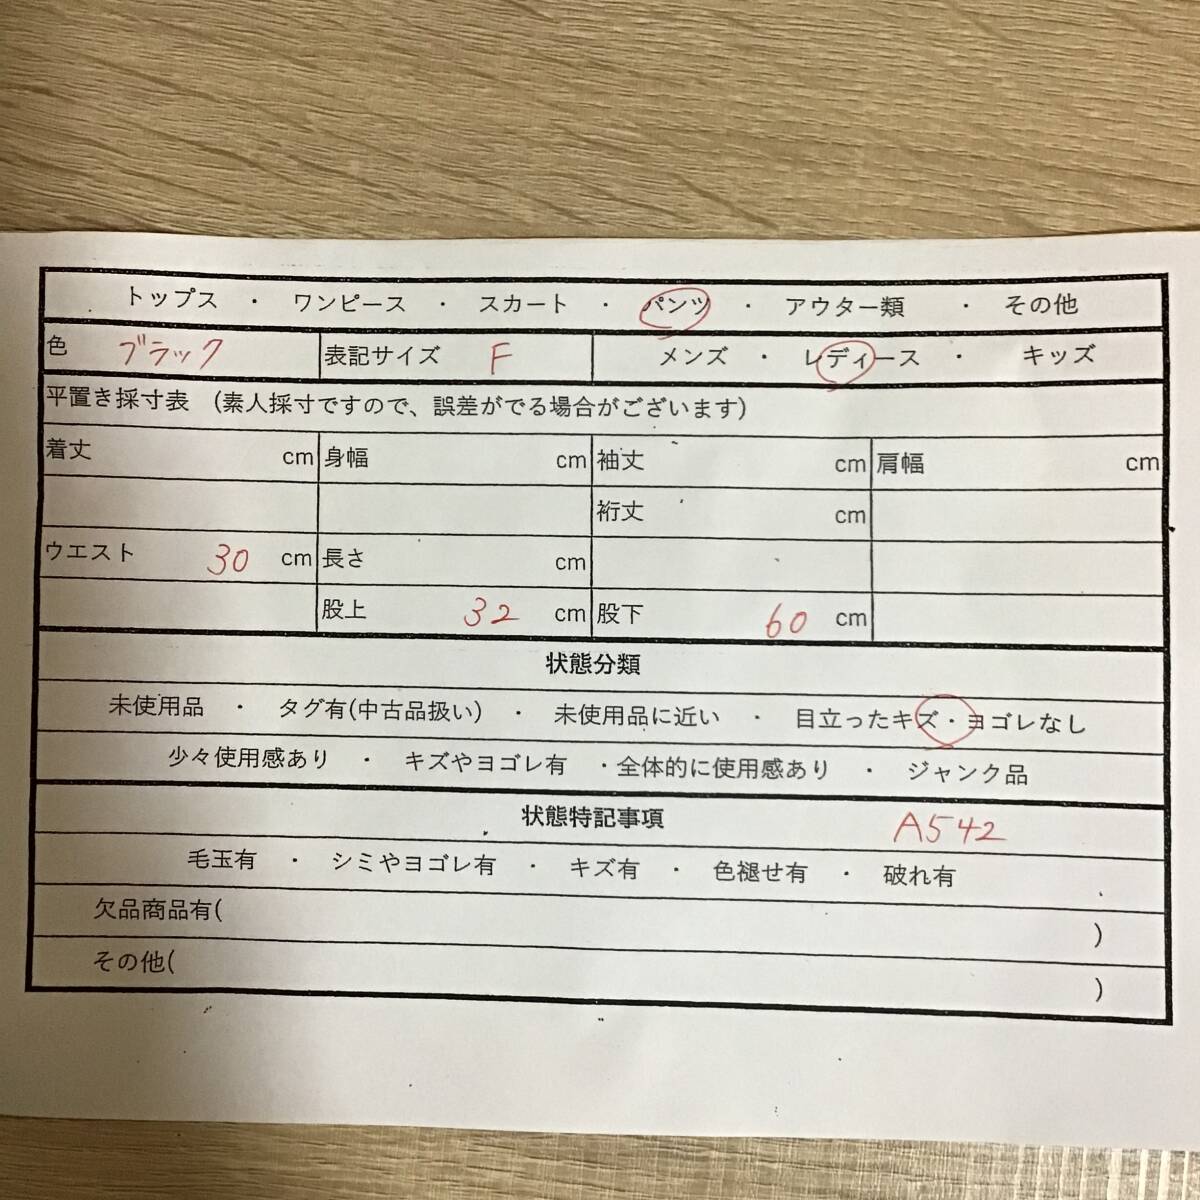 トップス ・ ワンピース ・ スカート ・ パンツ ・ アウター類 ・ その他
色 ブラック 表記サイズ F メンズ ・ レディース ・ キッズ
平置き採寸表 (素人採寸ですので、誤差がでる場合がございます)
着丈 cm 身幅 cm 袖丈 cm 肩幅 cm
裄丈 cm
ウエスト 30 cm 長さ cm
股上 32 cm 股下 60 cm
状態分類
未使用品 ・ タグ有(中古品扱い) ・ 未使用品に近い ・ 目立ったキズ・ヨゴレなし
少々使用感あり ・ キズやヨゴレ有 ・全体的に使用感あり ・ ジャンク品
状態特記事項 A542
毛玉有 ・ シミやヨゴレ有 ・ キズ有 ・ 色褪せ有 ・ 破れ有
欠品商品有( )
その他( )